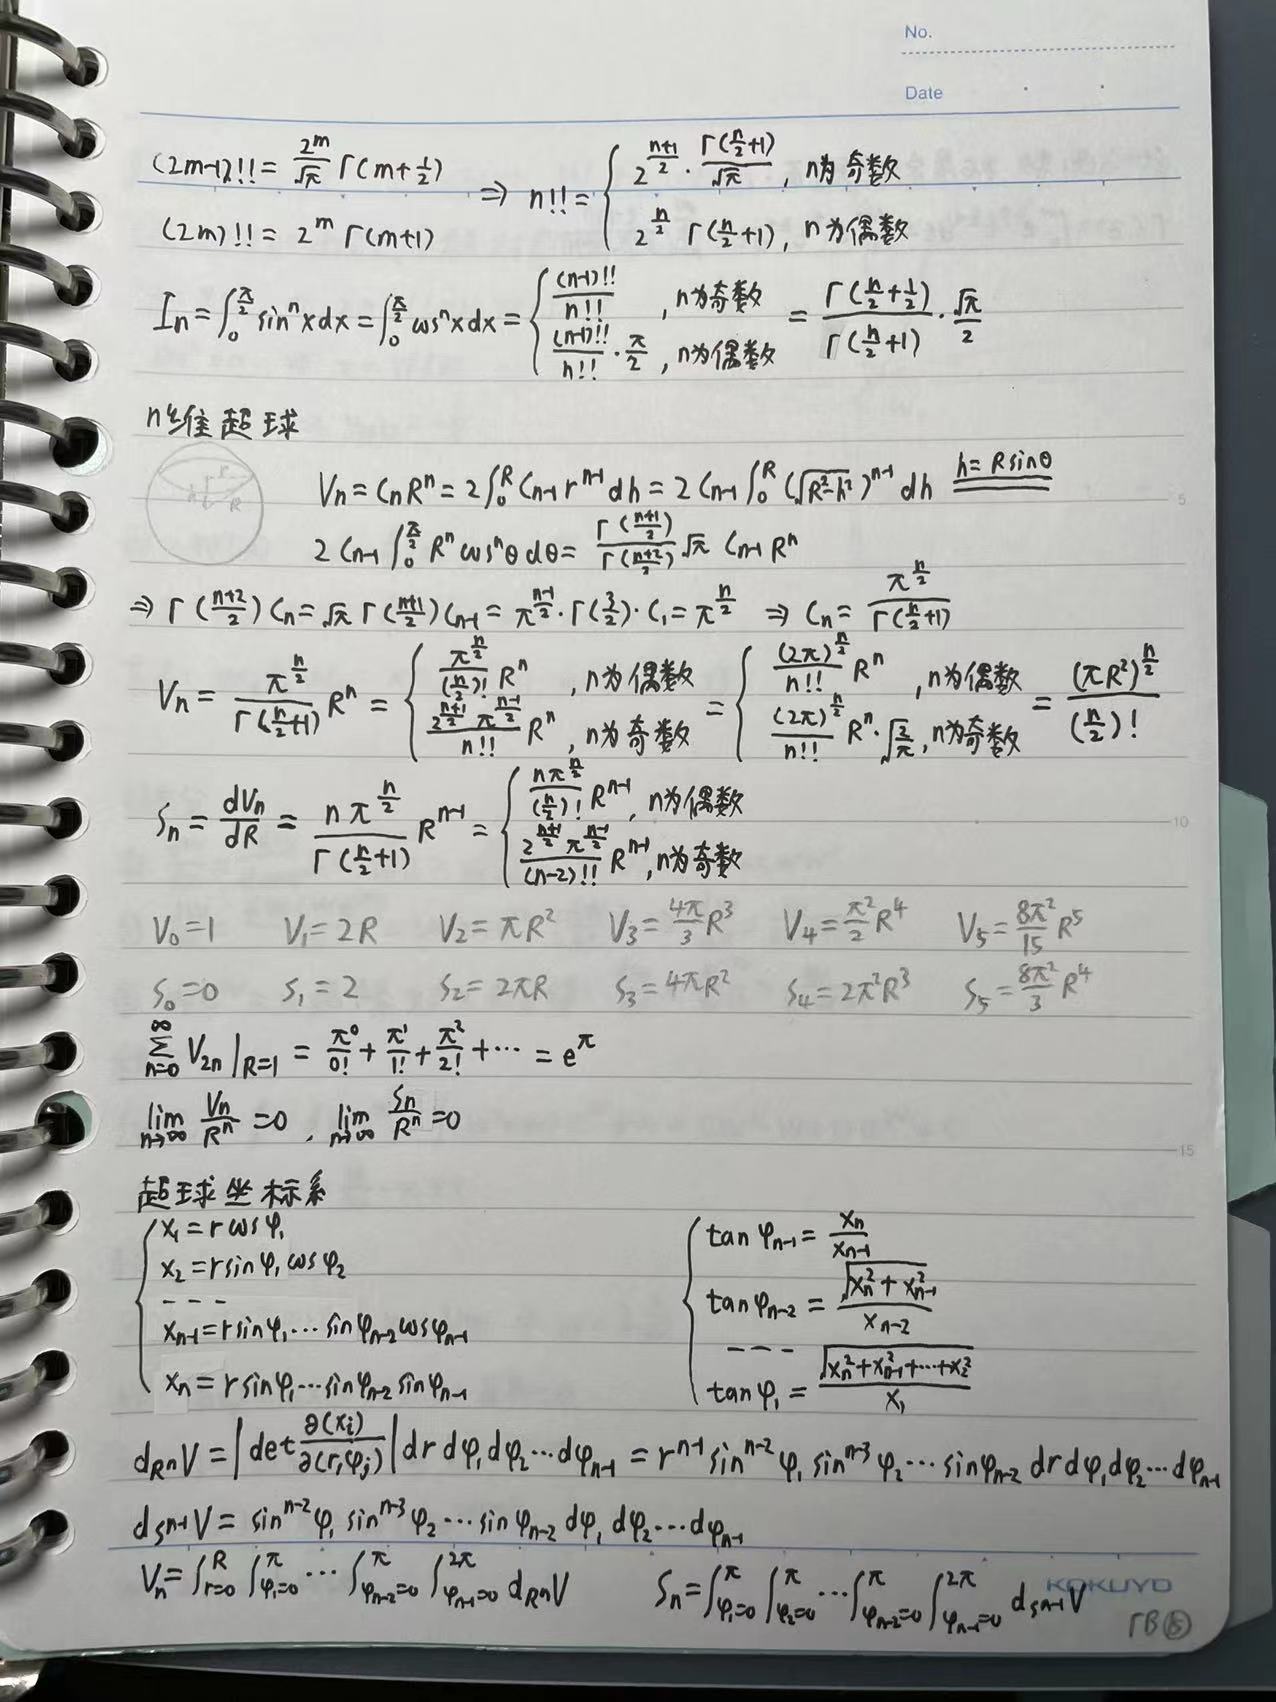 No.
Date
(2m-1)!! = \frac{2^m}{\sqrt{π}} Γ(m+\frac{1}{2})
(2m)!! = 2^m Γ(m+1)
⇒ n!! = { 2^{\frac{n+1}{2}} · \frac{Γ(\frac{n}{2}+1)}{\sqrt{π}}, n为奇数
2^{\frac{n}{2}} Γ(\frac{n}{2}+1), n为偶数
I_n = ∫_0^{\frac{π}{2}} sin^n x dx = ∫_0^{\frac{π}{2}} cos^n x dx = { \frac{(n-1)!!}{n!!}, n为奇数
\frac{(n-1)!!}{n!!} · \frac{π}{2}, n为偶数
= \frac{Γ(\frac{n}{2}+\frac{1}{2})}{Γ(\frac{n}{2}+1)} · \frac{\sqrt{π}}{2}
n维超球
r
h
R
V_n = C_n R^n = 2∫_0^R C_{n-1} r^{n-1} dh = 2 C_{n-1} ∫_0^R (\sqrt{R^2-h^2})^{n-1} dh \overset{h=R sinθ}{=}
2 C_{n-1} ∫_0^{\frac{π}{2}} R^n cos^n θ dθ = \frac{Γ(\frac{n+1}{2})}{Γ(\frac{n+2}{2})} \sqrt{π} C_{n-1} R^n
⇒ Γ(\frac{n+2}{2}) C_n = \sqrt{π} Γ(\frac{n+1}{2}) C_{n-1} = π^{\frac{n-1}{2}} · Γ(\frac{3}{2}) · C_1 = π^{\frac{n}{2}} ⇒ C_n = \frac{π^{\frac{n}{2}}}{Γ(\frac{n}{2}+1)}
V_n = \frac{π^{\frac{n}{2}}}{Γ(\frac{n}{2}+1)} R^n = { \frac{π^{\frac{n}{2}}}{(\frac{n}{2})!} R^n, n为偶数
\frac{2^{\frac{n+1}{2}} π^{\frac{n-1}{2}}}{n!!} R^n, n为奇数
= { \frac{(2π)^{\frac{n}{2}}}{n!!} R^n, n为偶数
\frac{(2π)^{\frac{n}{2}}}{n!!} R^n · \sqrt{\frac{2}{π}}, n为奇数
= \frac{(πR^2)^{\frac{n}{2}}}{(\frac{n}{2})!}
S_n = \frac{dV_n}{dR} = \frac{n π^{\frac{n}{2}}}{Γ(\frac{n}{2}+1)} R^{n-1} = { \frac{n π^{\frac{n}{2}}}{(\frac{n}{2})!} R^{n-1}, n为偶数
\frac{2^{\frac{n+1}{2}} π^{\frac{n-1}{2}}}{(n-2)!!} R^{n-1}, n为奇数
V_0=1 V_1=2R V_2=πR^2 V_3=\frac{4π}{3}R^3 V_4=\frac{π^2}{2}R^4 V_5=\frac{8π^2}{15}R^5
S_0=0 S_1=2 S_2=2πR S_3=4πR^2 S_4=2π^2R^3 S_5=\frac{8π^2}{3}R^4
\sum_{n=0}^{∞} V_{2n}|_{R=1} = \frac{π^0}{0!} + \frac{π^1}{1!} + \frac{π^2}{2!} + ··· = e^π
\lim_{n→∞} \frac{V_n}{R^n} = 0, \lim_{n→∞} \frac{S_n}{R^n} = 0
超球坐标系
x_1 = r cosφ_1
x_2 = r sinφ_1 cosφ_2
---
x_{n-1} = r sinφ_1 ··· sinφ_{n-2} cosφ_{n-1}
x_n = r sinφ_1 ··· sinφ_{n-2} sinφ_{n-1}
tanφ_{n-1} = \frac{x_n}{x_{n-1}}
tanφ_{n-2} = \frac{\sqrt{x_n^2+x_{n-1}^2}}{x_{n-2}}
----
tanφ_1 = \frac{\sqrt{x_n^2+x_{n-1}^2+···+x_2^2}}{x_1}
d_{R^n}V = |det \frac{∂(x_i)}{∂(r,φ_j)}| dr dφ_1 dφ_2 ··· dφ_{n-1} = r^{n-1} sin^{n-2}φ_1 sin^{n-3}φ_2 ··· sinφ_{n-2} dr dφ_1 dφ_2 ··· dφ_{n-1}
d_{S^{n-1}}V = sin^{n-2}φ_1 sin^{n-3}φ_2 ··· sinφ_{n-2} dφ_1 dφ_2 ··· dφ_{n-1}
V_n = ∫_{r=0}^R ∫_{φ_1=0}^π ··· ∫_{φ_{n-2}=0}^π ∫_{φ_{n-1}=0}^{2π} d_{R^n}V S_n = ∫_{φ_1=0}^π ∫_{φ_2=0}^π ··· ∫_{φ_{n-2}=0}^π ∫_{φ_{n-1}=0}^{2π} d_{S^{n-1}}V
5
10
15
KOKUYO